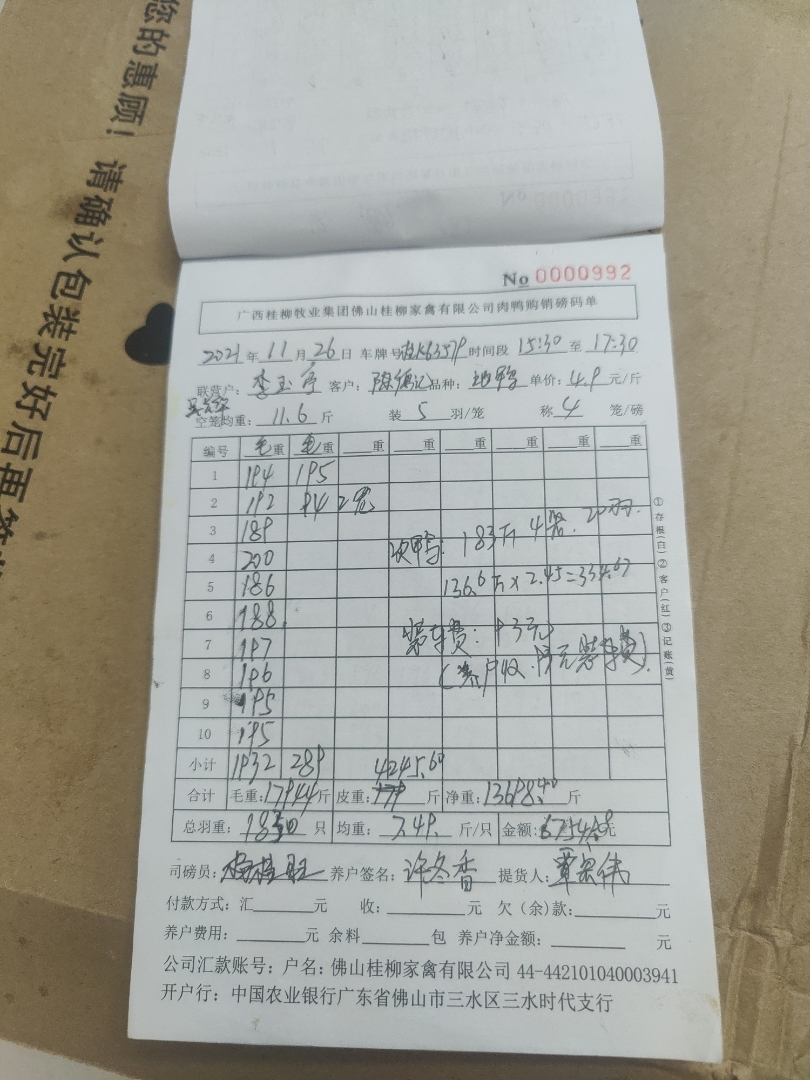 您的惠顾！ 请确认包装完好后再
No 0000992
广西桂柳牧业集团佛山桂柳家禽有限公司肉鸭购销磅码单
2021年11月26日 车牌号 时间段 15:30 至 17:30
联营户： 李玉 客户： 陈 记 品种： 鸭 单价：4.9元/斤
空笼均重：11.6斤 装5羽/笼 称4笼/磅
编号 毛重 毛重 重 重 重 重 重
1 194 195
2 192 94 2笼
3 189
次鸭：183斤 4笼. 20羽.
4 200
5 186 136.6斤×2.45=334.67
6 188
装车费：93元
7 197
8 196
9 195
10 195
小计 1932 289 4245.60
合计 毛重：17944斤 皮重： 斤 净重：13698.40斤
总羽重： 只 均重：7.49斤/只 金额： 元
司磅员： 养户签名：许冬香 提货人：覃 伟
付款方式：汇 元 收： 元 欠（余）款： 元
养户费用： 元 余料 包 养户净金额： 元
公司汇款账号：户名：佛山桂柳家禽有限公司 44-442101040003941
开户行：中国农业银行广东省佛山市三水区三水时代支行
①存根(白)②客户(红)③记账(黄)